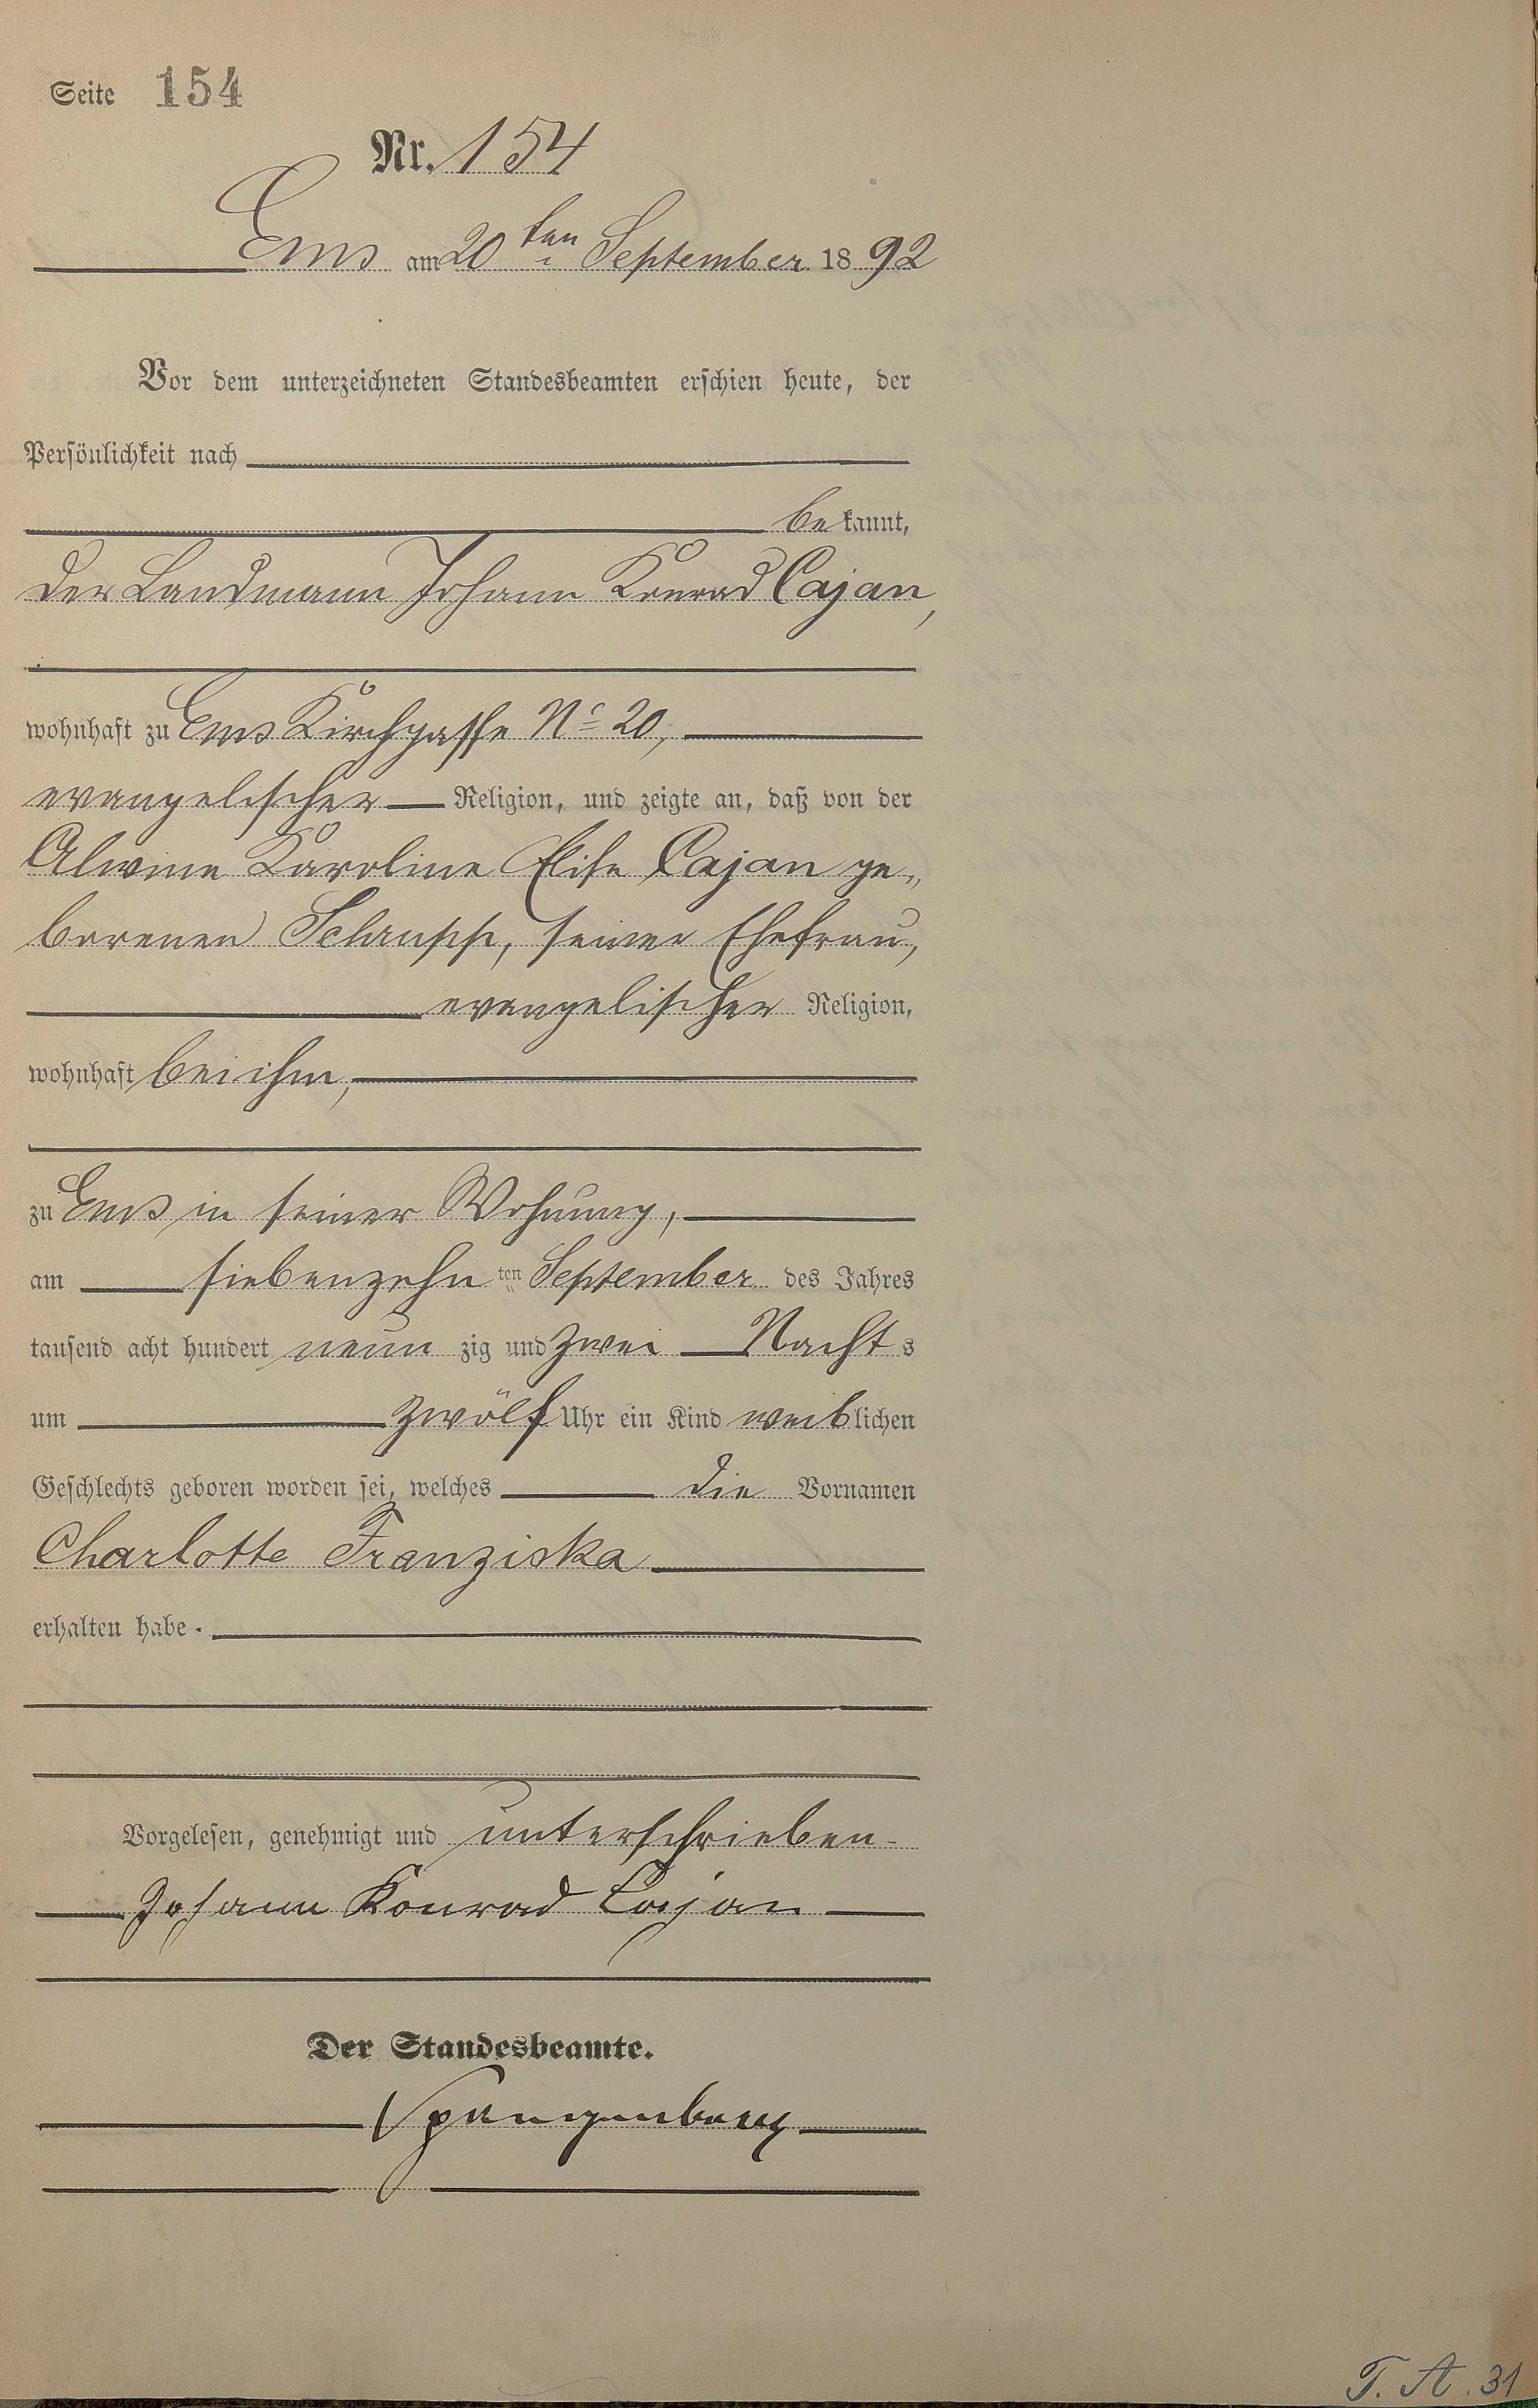 Seite 154
Nr. 154
Ems am 20ten September 1892
Vor dem unterzeichneten Standesbeamten erschien heute, der
Persönlichkeit nach
bekannt,
der Landmann Johann Konrad Cajan,
wohnhaft zu Ems Kirchgasse No 20,
evangelischer Religion, und zeigte an, daß von der
Alwine Karoline Elise Cajan ge„
borenen Schupp, seiner Ehefrau,
evangelischer Religion,
wohnhaft bei ihm,
zu Ems in seiner Wohnung,
am siebenzehnten September des Jahres
tausend acht hundert neunzig und zwei Nachts
um zwölf Uhr ein Kind weiblichen
Geschlechts geboren worden sei, welches die Vornamen
Charlotte Franziska
erhalten habe.
Vorgelesen, genehmigt und unterschrieben
Johann Konrad Cajan
Der Standesbeamte.
Spangenberg
T. A. 31